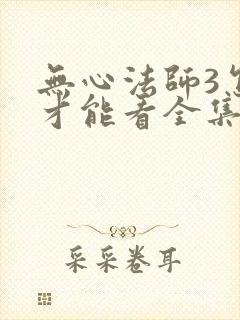 無心法師3怎
才能看全集
采采卷耳